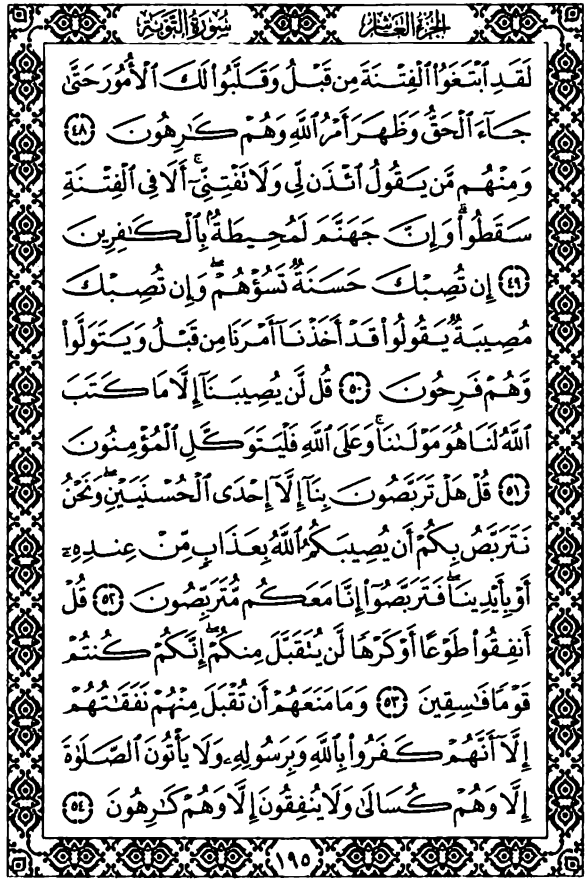 الجزء العاشر
سورة التوبة
لَقَدِ ابْتَغَوُا الْفِتْنَةَ مِن قَبْلُ وَقَلَّبُوا لَكَ الْأُمُورَ حَتَّىٰ
جَاءَ الْحَقُّ وَظَهَرَ أَمْرُ اللَّهِ وَهُمْ كَارِهُونَ ٤٨
وَمِنْهُم مَّن يَقُولُ ائْذَن لِّي وَلَا تَفْتِنِّي ۚ أَلَا فِي الْفِتْنَةِ
سَقَطُوا ۗ وَإِنَّ جَهَنَّمَ لَمُحِيطَةٌ بِالْكَافِرِينَ
٤٩ إِن تُصِبْكَ حَسَنَةٌ تَسُؤْهُمْ ۖ وَإِن تُصِبْكَ
مُصِيبَةٌ يَقُولُوا قَدْ أَخَذْنَا أَمْرَنَا مِن قَبْلُ وَيَتَوَلَّوا
وَّهُمْ فَرِحُونَ ٥٠ قُل لَّن يُصِيبَنَا إِلَّا مَا كَتَبَ
اللَّهُ لَنَا هُوَ مَوْلَانَا ۚ وَعَلَى اللَّهِ فَلْيَتَوَكَّلِ الْمُؤْمِنُونَ
٥١ قُلْ هَلْ تَرَبَّصُونَ بِنَا إِلَّا إِحْدَى الْحُسْنَيَيْنِ ۖ وَنَحْنُ
نَتَرَبَّصُ بِكُمْ أَن يُصِيبَكُمُ اللَّهُ بِعَذَابٍ مِّنْ عِندِهِ
أَوْ بِأَيْدِينَا ۖ فَتَرَبَّصُوا إِنَّا مَعَكُم مُّتَرَبِّصُونَ ٥٢ قُلْ
أَنفِقُوا طَوْعًا أَوْ كَرْهًا لَّن يُتَقَبَّلَ مِنكُمْ ۖ إِنَّكُمْ كُنتُمْ
قَوْمًا فَاسِقِينَ ٥٣ وَمَا مَنَعَهُمْ أَن تُقْبَلَ مِنْهُمْ نَفَقَاتُهُمْ
إِلَّا أَنَّهُمْ كَفَرُوا بِاللَّهِ وَبِرَسُولِهِ وَلَا يَأْتُونَ الصَّلَاةَ
إِلَّا وَهُمْ كُسَالَىٰ وَلَا يُنفِقُونَ إِلَّا وَهُمْ كَارِهُونَ ٥٤
١٩٥